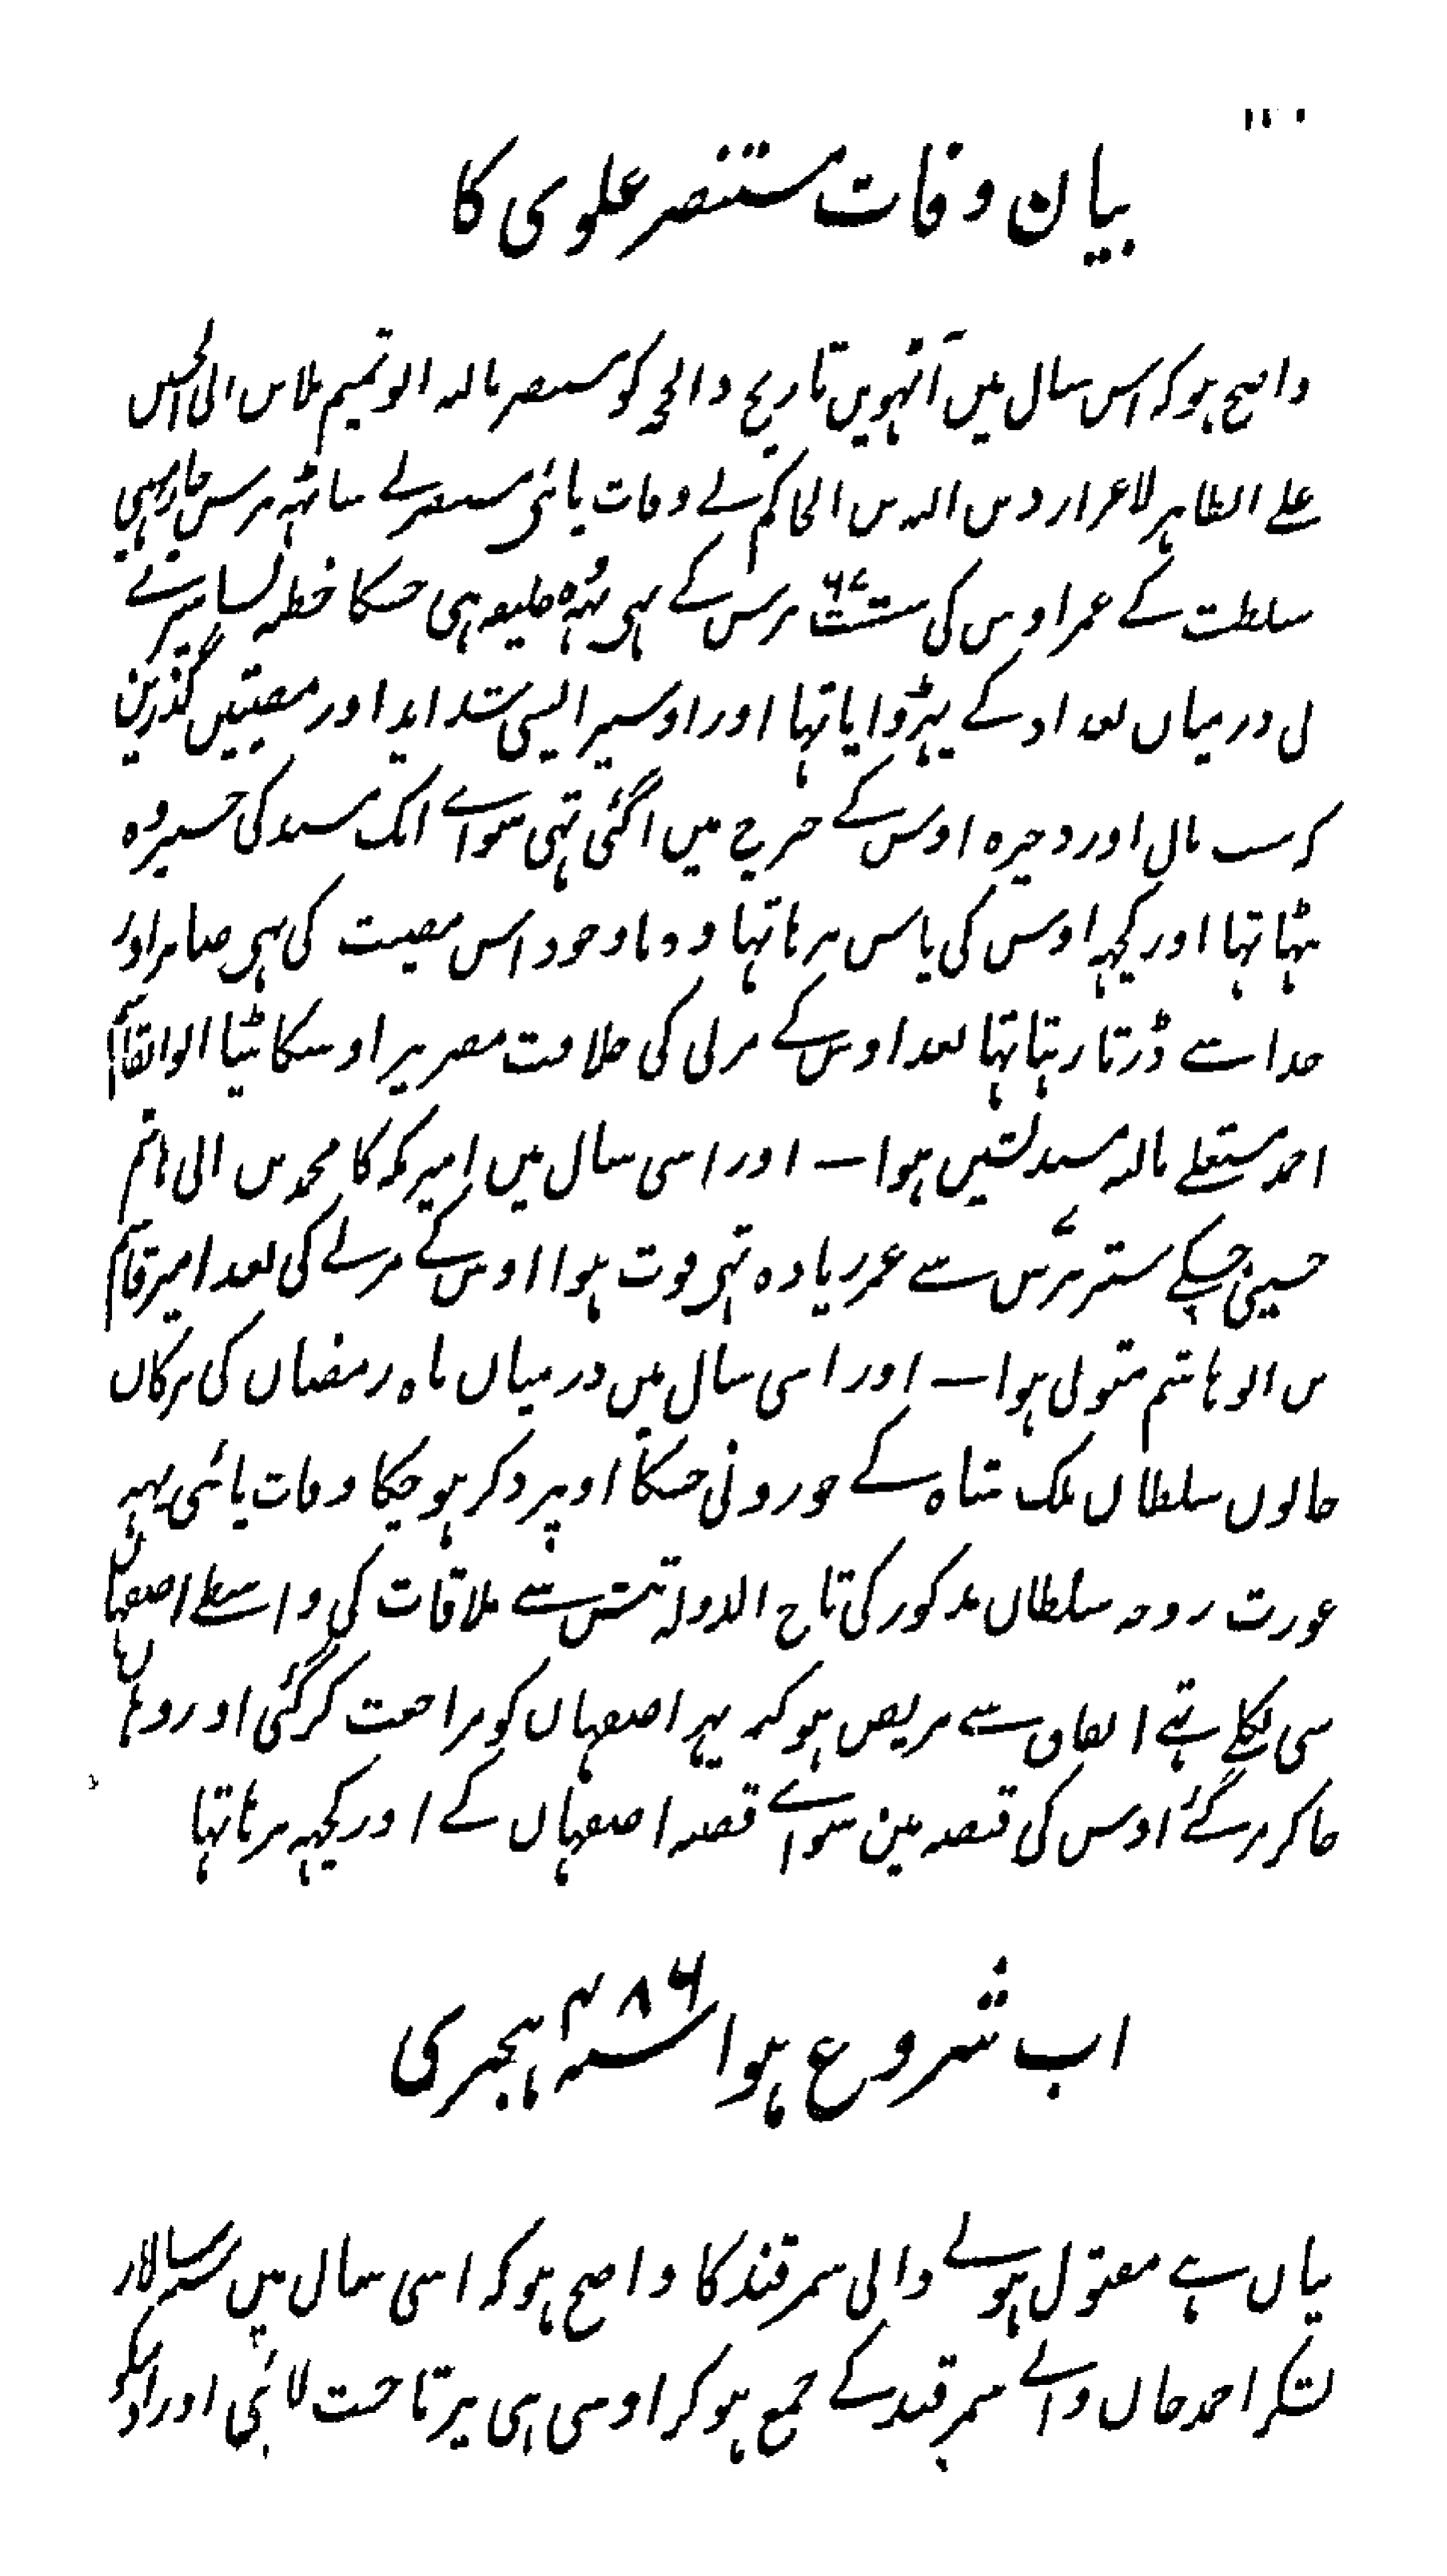 بیان وفات مستنصر علوی کا
واضح ہو کہ اس سال میں آٹھویں تاریخ ذالحجہ کو مستنصر باللہ ابو تمیم بن ابی الحسن
علے الظاہر لاعزاز دین اللہ بن الحاکم نے وفات پائی مستنصر نے ساٹھہ برس چار مہینے
سلطنت کے عمر اوس کی ستسٹھ ۶۷ برس کے ہی یہہ وہ خلیفہ ہی جسکا خطبہ بساسیری نے
درمیاں بغداد کے پڑھوایا تہا اور اوسپر ایسی شداید اور مصیبتیں گذریں
کہ سب مال اور ذخیرہ اوس کے خرچ میں اگئی تہی سواے ایک مسند کی جسپر وہ
بیٹہا تہا اور کچہہ اوس کی پاس نرہا تہا وہ باوجود اس مصیبت کی بہی صابر اور
خدا سے ڈرتا رہتا تہا بعد اوس کے مرنی کی خلافت مصر پر اوسکا بیٹا ابوالقاسم
احمد مستعلے باللہ مسندنشیں ہوا ـ اور اسی سال میں امیر مکہ کا محمد بن ابی ہاشم
حسینی جسکے ستر ۷۰ برس سے عمر زیادہ تہی فوت ہوا اوس کے مرنے کی بعد امیر قاسم
بن ابو ہاشم متولی ہوا ـ اور اسی سال میں درمیاں ماہ رمضاں کی ترکاں
خاتوں سلطاں ملک شاہ کے جورو نی جسکا اوپر ذکر ہو چکا وفات پائی یہہ
عورت زوجہ سلطاں مذکور کی تاج الدولہ تتش سے ملاقات کی واسطے اصفہاں
سی نکلے تہے اتفاق سے مریض ہو کر پہر اصفہاں کو مراجعت کر گئی اور وہاں
جا کر مر گئے اوس کی قبضہ میں سواے قصبہ اصفہاں کے اور کچہہ نرہا تہا
اب شروع ہوا سنہ ۴۸۶ ہجری
بیاں ہے مقتول ہونے والی سمرقند کا واضح ہو کہ اسی سال میں سپہ سالار
لشکر احمد خاں والے سمرقند کے جمع ہو کر اوسی ہی پر تاخت لائی اور اوسکو